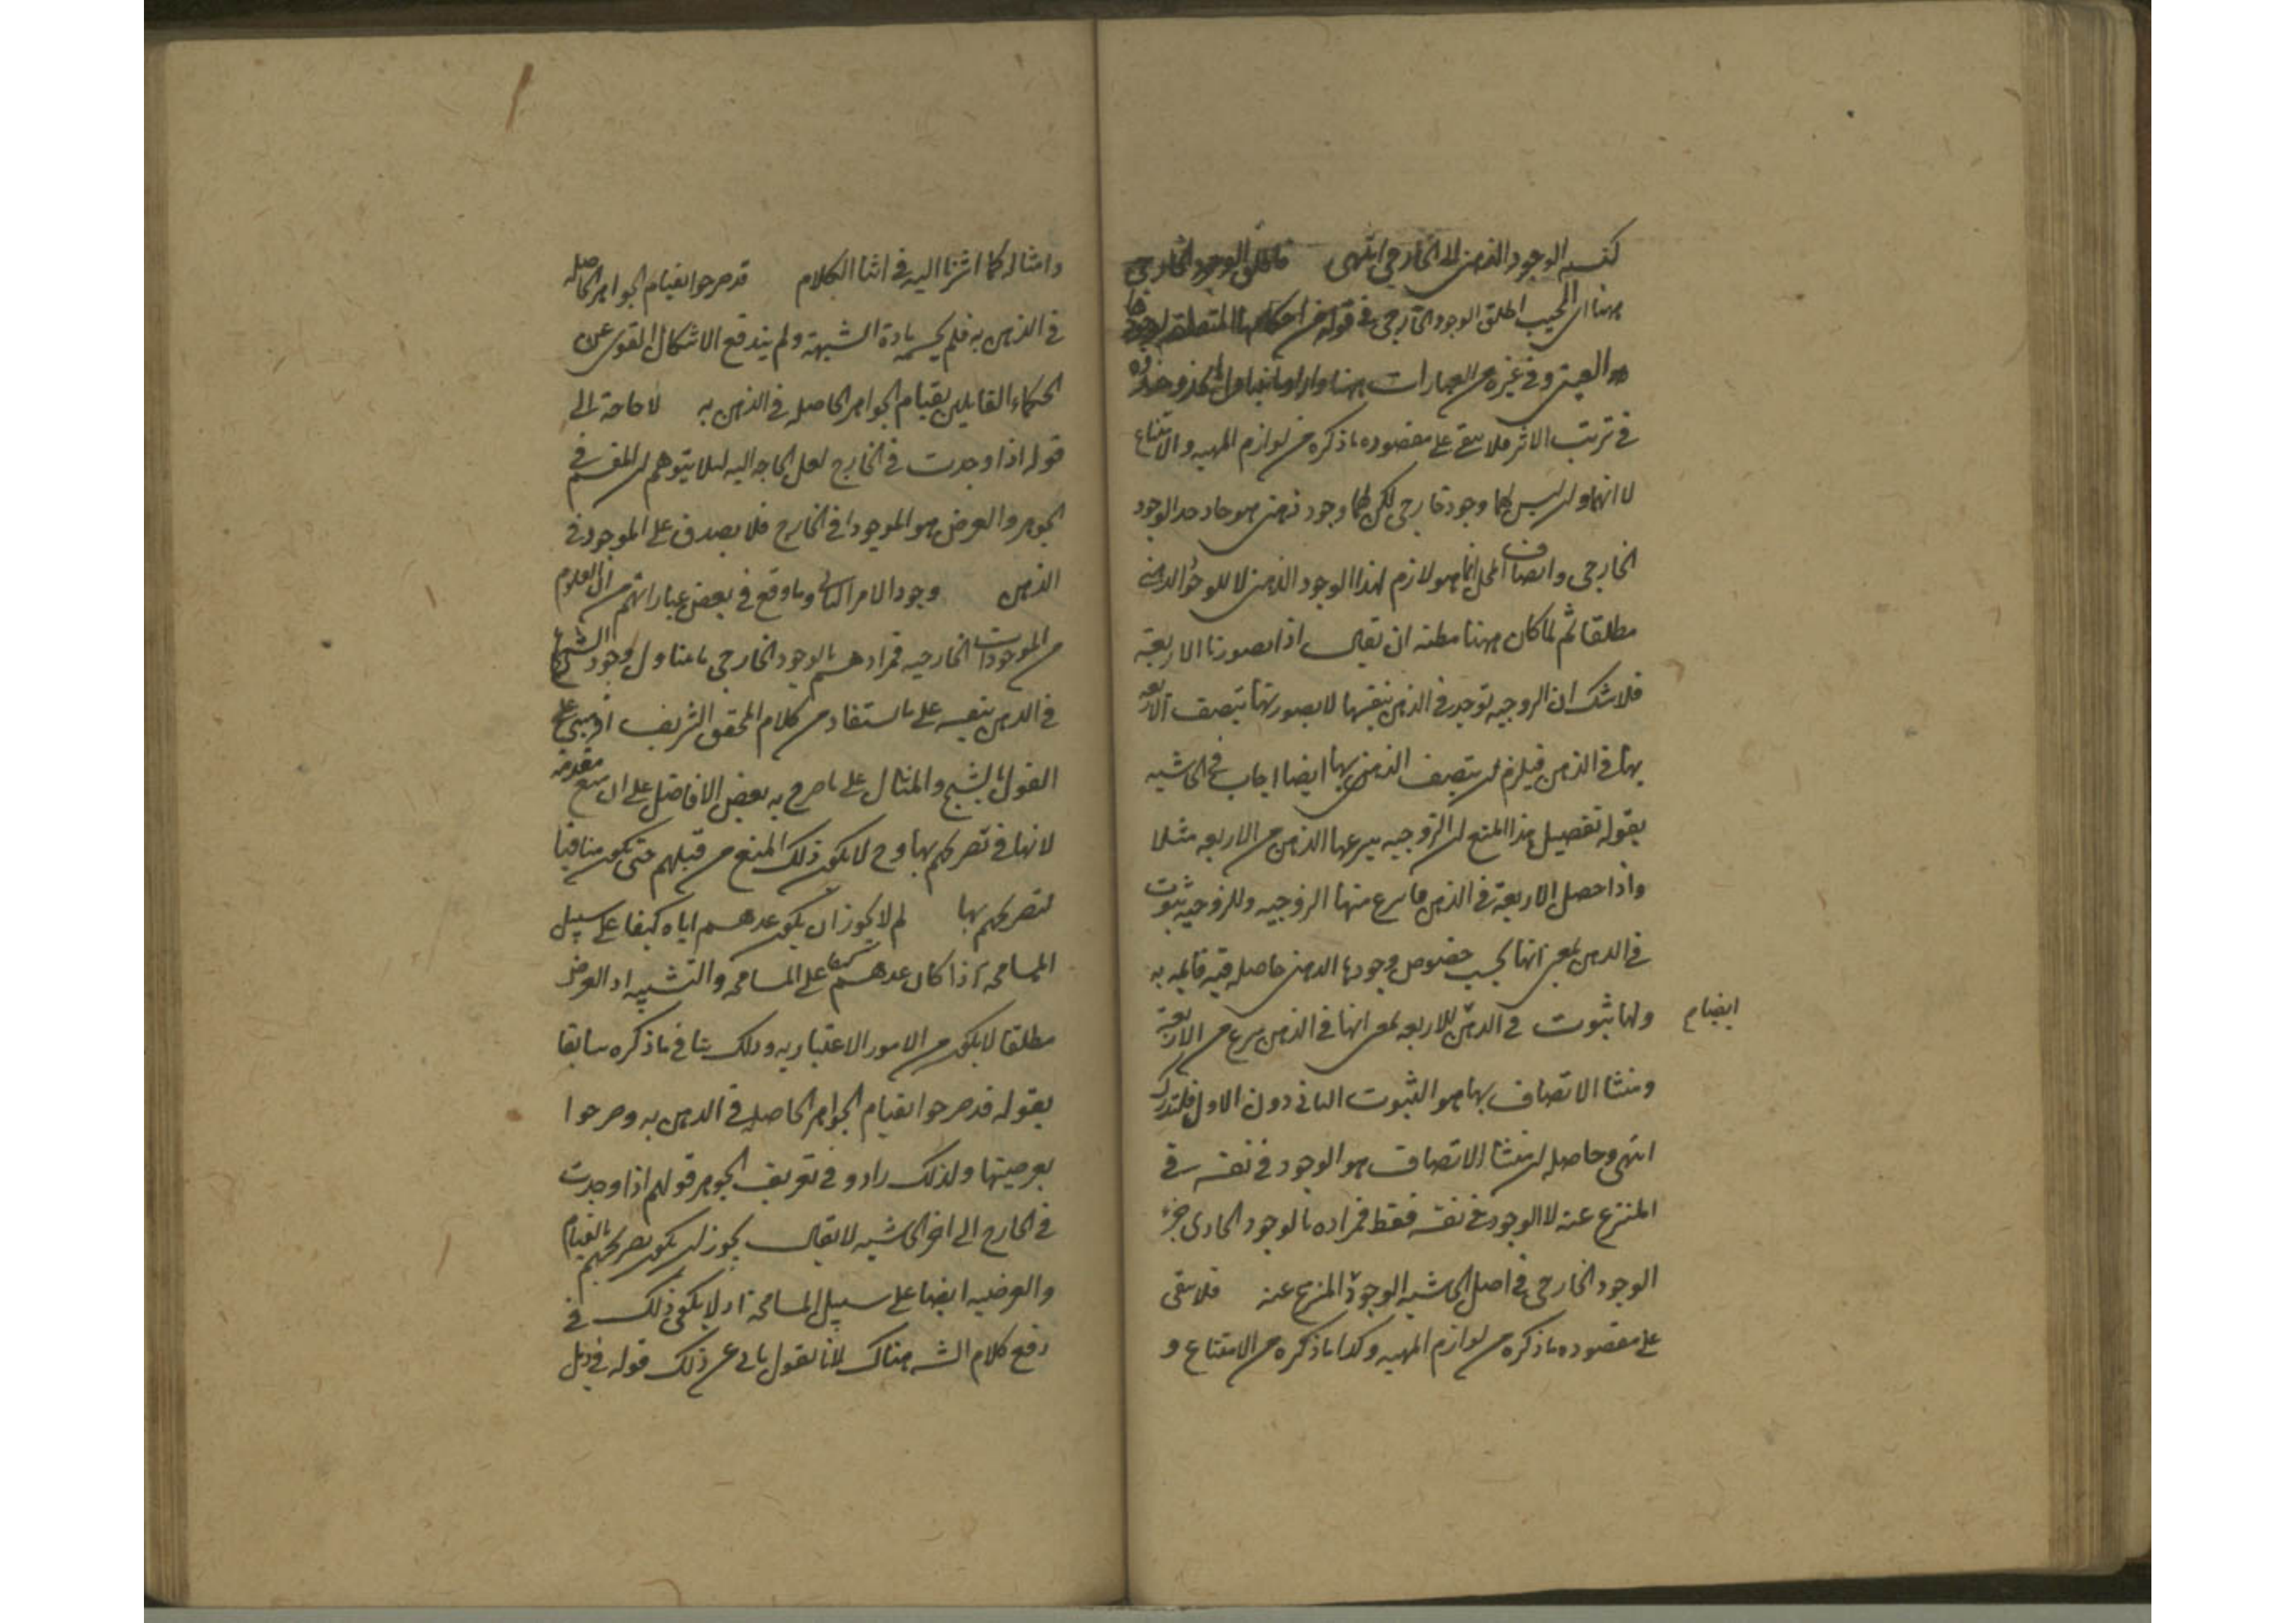 كنسبه الوجود الذهني الى الخارجي انتهى فاطلق الوجود الخارجي
ههنا اى المجيب اطلق الوجود الخارجي في قوله من احكامها المتعلقه بوجودها
العيني وفي غيره من العبارات ههنا واراد ما يتناول
في ترتب الاثر فلا يبقى على مقصوده ما ذكره من لوازم المهيه والامتناع
لا انها وان ليس لها وجود خارجي لكن لها وجود ذهني هو حاد حد الوجود
الخارجي واتصاف المحل انما هو لازم لهذا الوجود الذهني لا للوجود الذهني
مطلقا ثم لما كان ههنا مظنه ان يقال اذا تصورنا الاربعة
فلا شك ان الزوجيه توجد في الذهن بنفسها لا بصورتها تتصف الاربعه
بها في الذهن فيلزم ان يتصف الذهن بها ايضا اجاب في الحاشيه
بقوله تفصيل هذا المنع ان الزوجيه ينتزعها الذهن من الاربعه مثلا
واذا حصل الاربعة في الذهن فانتزع منها الزوجيه وللزوجيه ثبوت
في الذهن بمعنى انها بحسب خصوص وجودها الذهني حاصله فيه قايمه به
ايضا م
ولها ثبوت في الذهن للاربعه بمعنى انها في الذهن ينتزع من الاربعة
ومنشا الاتصاف بها هو الثبوت الثاني دون الاول فليتدبر
انتهى وحاصله ان منشا الاتصاف هو الوجود في نفسه في
المنتزع عنه لا الوجود في نفسه فقط فمراده بالوجود الحادى
الوجود الخارجي في اصل الحاشيه الوجود في المنتزع عنه فلا يبقى
على مقصوده ما ذكره من لوازم المهيه وكذا ما ذكره من الامتناع و
وامثاله كما اشرنا اليه في اثنا الكلام قد صرحوا بقيام الجواهر الحاصله
في الذهن به فلم يحسم مادة الشبهة ولم يندفع الاشكال القوى عن
الحكماء القايلين بقيام الجواهر الحاصله في الذهن به لا حاجة الى
قوله اذا وجدت في الخارج لعل الحاجه اليه لئلا يتوهم ان المقسم في
الجوهر والعرض هو الموجود في الخارج فلا يصدق على الموجود في
الذهن وجود الامر الثانى وما وقع في بعض عباراتهم من ان العلوم
من الموجودات الخارجيه فمرادهم بالوجود الخارجي ما يتناول وجود الشبح
في الذهن بنفسه على ما استفاد من كلام المحقق الشريف او مبنى على
القول بالشبح والمثال على ما صرح به بعض الافاضل على ان منع مقدمه
لا ينافي تصريحهم بها وح لا يكون ذلك المنع من قبلهم حتى يكون منافيا
لتصريحهم بها لم لا يجوز ان يكون عدهم اياه كيفا على سبيل
المسامحه اذا كان عدهم كيفا على المسامحه والتشبيه اذ العرض
مطلقا لا يكون من الامور الاعتباريه وذلك ينافي ما ذكره سابقا
بقوله قد صرحوا بقيام الجواهر الحاصله في الذهن به وصرحوا
بعرضيتها ولذلك زادوا في تعريف الجوهر قولهم اذا وجدت
في الخارج الى اخر الحاشيه لا يقال يجوز ان يكون تصريحهم بالقيام
والعرضيه ايضا على سبيل المسامحه اذ لا يكون ذلك في
دفع كلام الشه هناك لانا نقول يابى عن ذلك قوله في ذيل